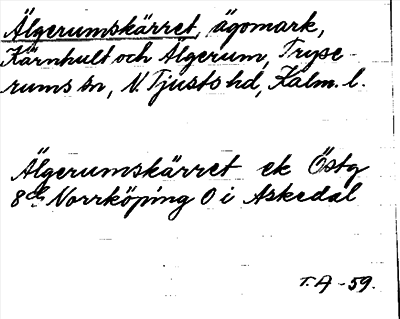 Älgerumskärret, ägomark,
Kärnhult och Älgerum, Tryse-
rums sn, N. Tjusts hd, Kalm. l.
Älgerumskärret ek Östg
8d Norrköping O i Askedal
T.A -59.